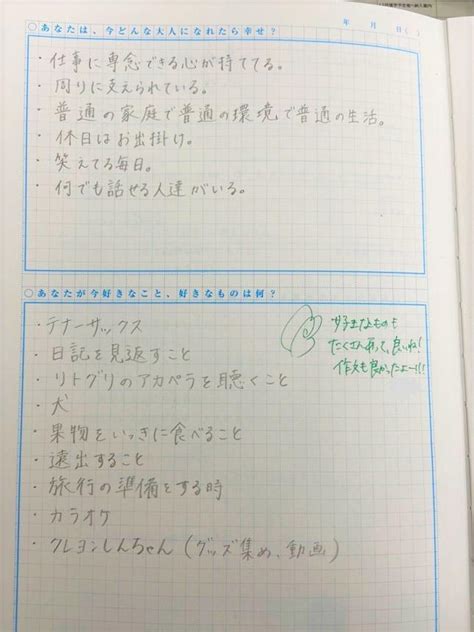 年 月 日( )
○あなたは、今どんな大人になれたら幸せ？
・仕事に専念できる心が持ててる。
・周りに支えられている。
・普通の家庭で普通の環境で普通の生活。
・休日はお出掛け。
・笑えてる毎日。
・何でも話せる人達がいる。
○あなたが今好きなこと、好きなものは何？
・テナーサックス
・日記を見返すこと
・リトグリのアカペラを聴くこと
・犬
・果物をいっきに食べること
・遠出すること
・旅行の準備をする時
・カラオケ
・クレヨンしんちゃん（グッズ集め、動画）
好きなものも
たくさんあって、良いね!
作文も良かったよー!!!